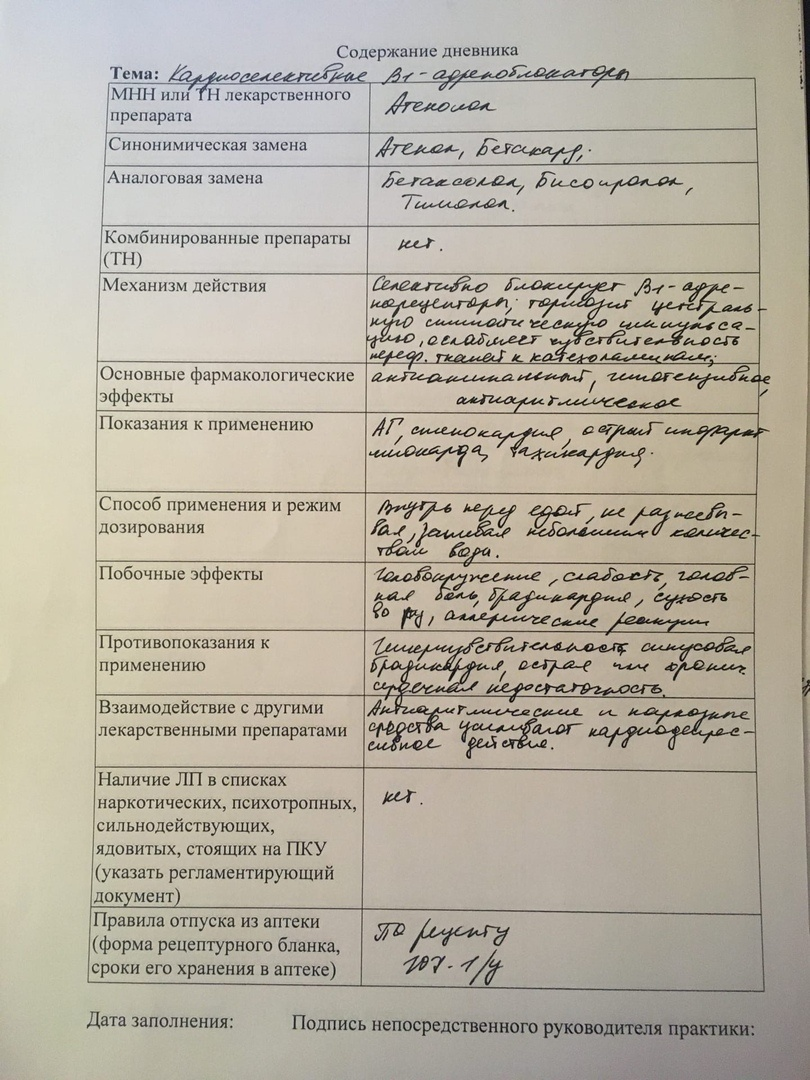 Содержание дневника
Тема: Кардиоселективные В1-адреноблокаторы
МНН или ТН лекарственного
препарата
Атенолол
Синонимическая замена
Атенол, Бетакард,.
Аналоговая замена
Бетаксолол, Бисопролол,
Тимолол.
Комбинированные препараты
(ТН)
нет.
Механизм действия
Селективно блокирует В1-адре-
норецепторы; тормозит централь-
ную симпатическую импульса-
цию, ослабляет чувствительность
периф. тканей к катехоламинам;
Основные фармакологические
эффекты
антиангинальный, гипотензивное,
антиаритмическое
Показания к применению
АГ, стенокардия, острый инфаркт
миокарда, тахикардия.
Способ применения и режим
дозирования
Внутрь перед едой, не разжевы-
вая, запивая небольшим количес-
твом воды.
Побочные эффекты
Головокружение, слабость, голов-
ная боль, брадикардия, сухость
во рту, аллергические реакции
Противопоказания к
применению
Гиперчувствительность синусовая
брадикардия, острая или хронич.
сердечная недостаточность.
Взаимодействие с другими
лекарственными препаратами
Антиаритмические и наркозные
средства усиливают кардиодепрес-
сивное действие.
Наличие ЛП в списках
наркотических, психотропных,
сильнодействующих,
ядовитых, стоящих на ПКУ
(указать регламентирующий
документ)
нет.
Правила отпуска из аптеки
(форма рецептурного бланка,
сроки его хранения в аптеке)
По рецепту
107-1/у
Дата заполнения: Подпись непосредственного руководителя практики: